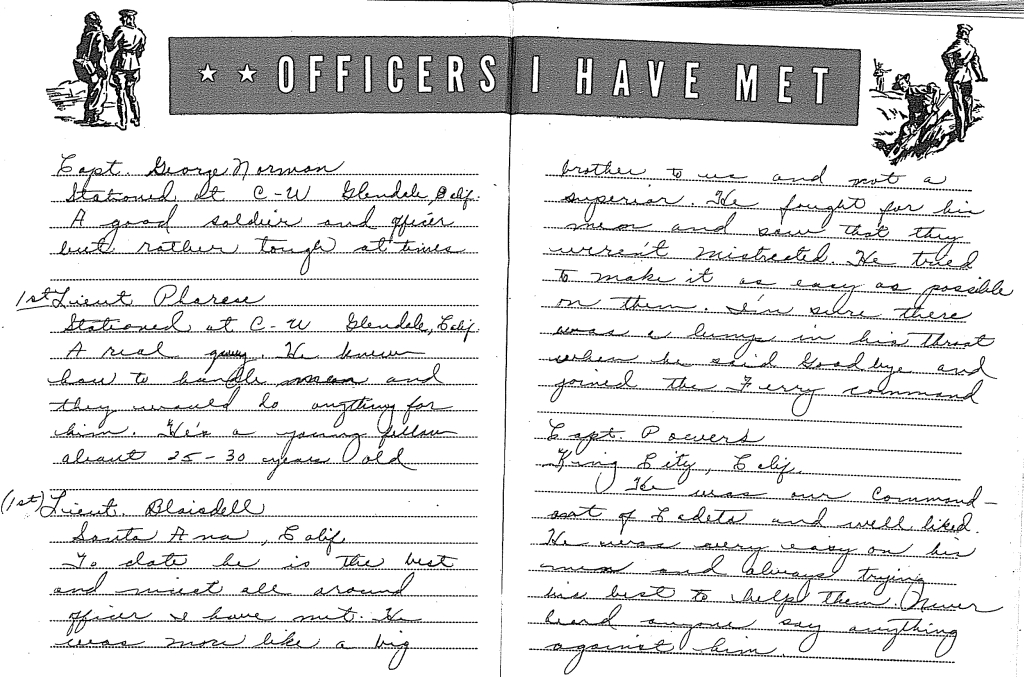 ★ ★ OFFICERS I HAVE MET
Capt. George Norman
Stationed at C-W Glendale, Calif.
A good soldier and officer
but rather tough at times
1st Lieut Pharese
Stationed at C-W Glendale, Calif.
A real guy. He knew
how to handle men and
they would do anything for
him. He's a young fellow
about 25-30 years old
(1st) Lieut. Blaisdell
Santa Ana, Calif.
To date he is the best
and nicest all around
officer I have met. He
was more like a big
brother to us and not a
superior. He fought for his
men and saw that they
weren't mistreated. He tried
to make it as easy as possible
on them. I'm sure there
was a lump in his throat
when he said Goodbye and
joined the Ferry command
Capt. Powers
King City, Calif.
He was our Command-
ant of Cadets and well liked.
He was very easy on his
men and always trying
his best to help them. Never
heard anyone say anything
against him.